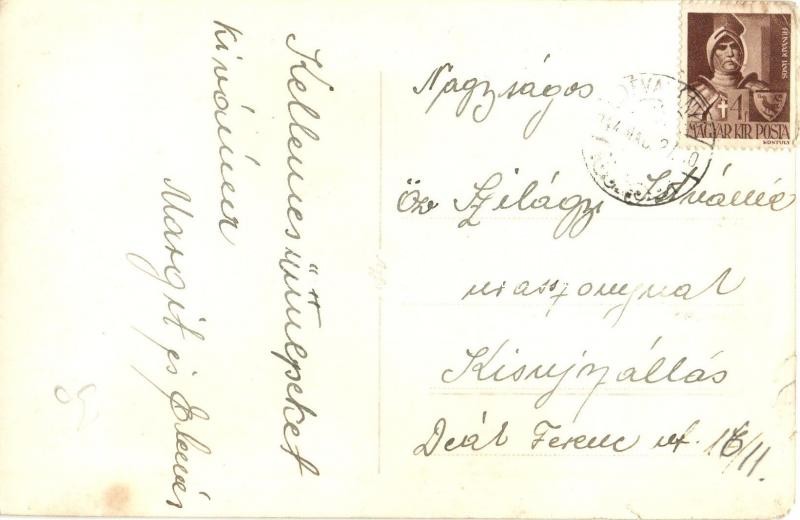 Kellemes ünnepeket
kívánnak
Margit és Elemér
Nagyságos
Öv Szilágyi Istvánné
úrasszonynak
Kisujszállás
Deák Ferenc u. 16/11.
HUNYADI JÁNOS
4f
MAGYAR KIR POSTA
KONTULY